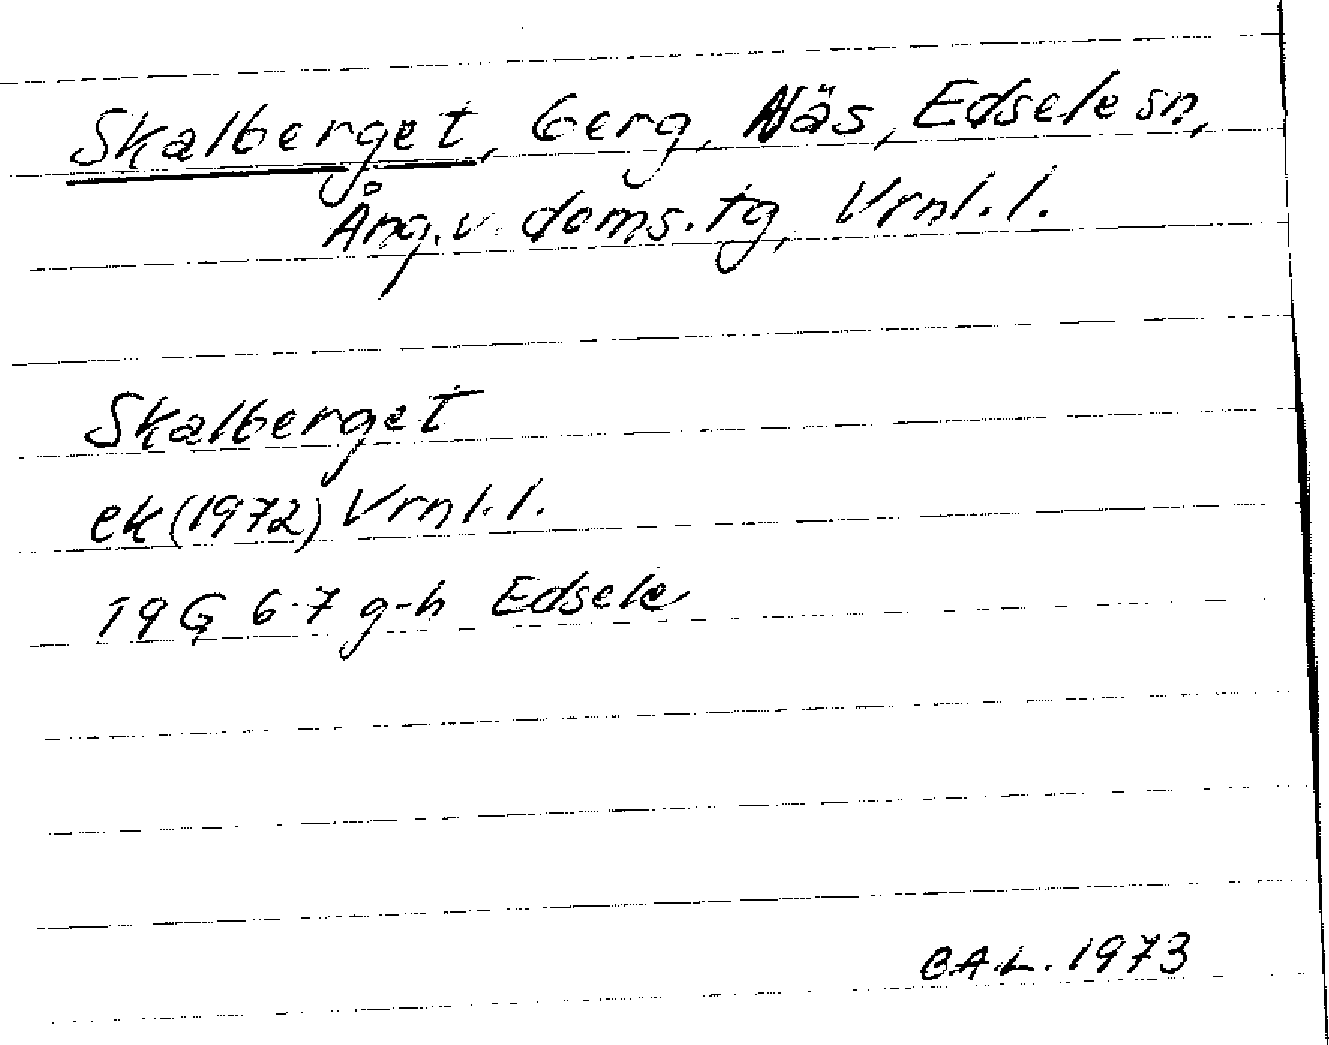 Skalberget, berg, Näs, Edsele sn,
Ång.v. doms.tg, Vrnl.l.
Skalberget
ek (1972) Vrnl.l.
19G 6-7 g-h Edsele
B.A.L. 1973